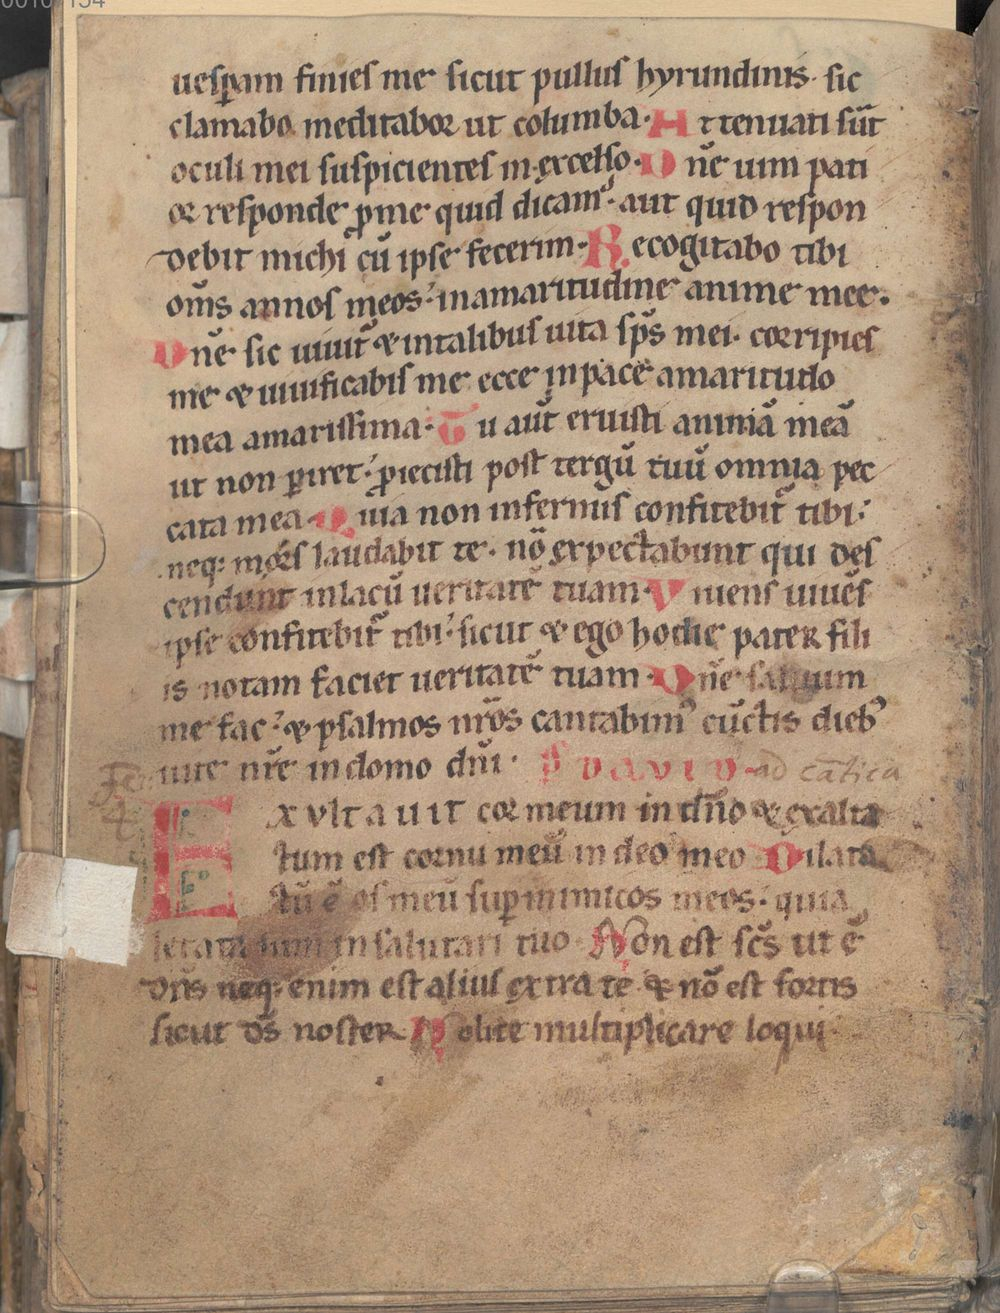 uesꝑam finies me sicut pullus hyrundinis· sic
clamabo meditabor ut columba· Attenuati sūt
oculi mei suspicientes in excelso· Dn̄e uim pati
or responde ꝓme quid dicam· aut quid respon
debit michi cū ipse fecerim· Recogitabo tibi
om̄s annos meos· inamaritudine anime mee·
Dn̄e sic uiuit̄ & intalibus uita sp̄s mei· corripies
me & uiuificabis me ecce inpace amaritudo
mea amarissima· Tu aūt eruisti animā meā
ut non ꝑiret· ꝓiecisti post tergū tuū omnia pec
cata mea· Quia non infernus confitebit̄ tibi·
neq; mors laudabit te· nō expectabunt qui des
cendunt inlacū ueritatē tuam· Viuens uiuēs
ipse confitebit̄ tibi· sicut & ego hodie pater fili
is notam faciet ueritatē tuam· Dn̄e saluum
me fac· & psalmos nr̄os cantabimꝰ cūctis diebꝰ
uite nr̄e indomo dn̄i· P̄S DAVID ad cātica
Fe 4
EXVLTAUIT cor meum in dn̄o & exalta
tum est cornu meū in deo meo Dilata
tū ē os meū suꝑ inimicos meos· quia
letata sum in salutari tuo· Non est sc̄s ut ē
dn̄s neq; enim est alius extra te & nō est fortis
sicut ds̄ noster Nolite multiplicare loqui·